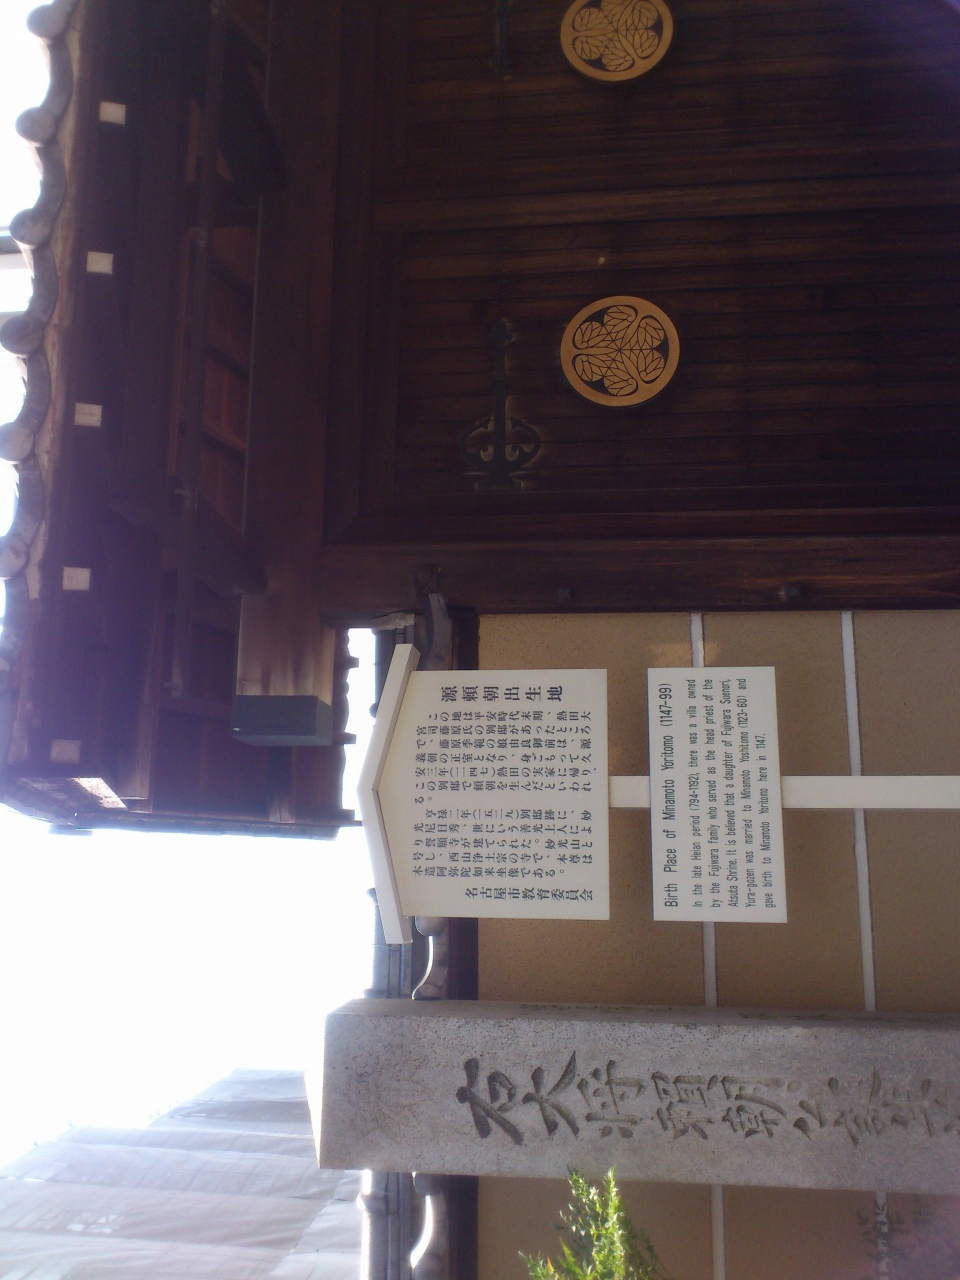 源頼朝出生地
この地は平安時代末期、熱田大
宮司藤原氏の別邸があったところ
で、藤原季範の娘由良御前は、源
義朝の正室となり、身ごもって久
安三年(一一四七)熱田の実家に帰り、
この別邸で頼朝を生んだといわれ
る。
享禄二年(一五二九)別邸跡に妙
光尼日秀、世にいう善光上人によ
り誓願寺が建てられた。妙光山と
号し、西山浄土宗の寺で、本尊は
木造阿弥陀如来坐像である。
名古屋市教育委員会
Birth Place of Minamoto Yoritomo (1147-99)
In the late Heian period (794-1192), there was a villa owned
by the Fujiwara family who served as the head priest of the
Atsuta Shrine. It is believed that a daughter of Fujiwara Suenori,
Yura-gozen was married to Minamoto Yoshitomo (1123-60) and
gave birth to Minamoto Yoritomo here in 1147.
右大将頼朝公誕